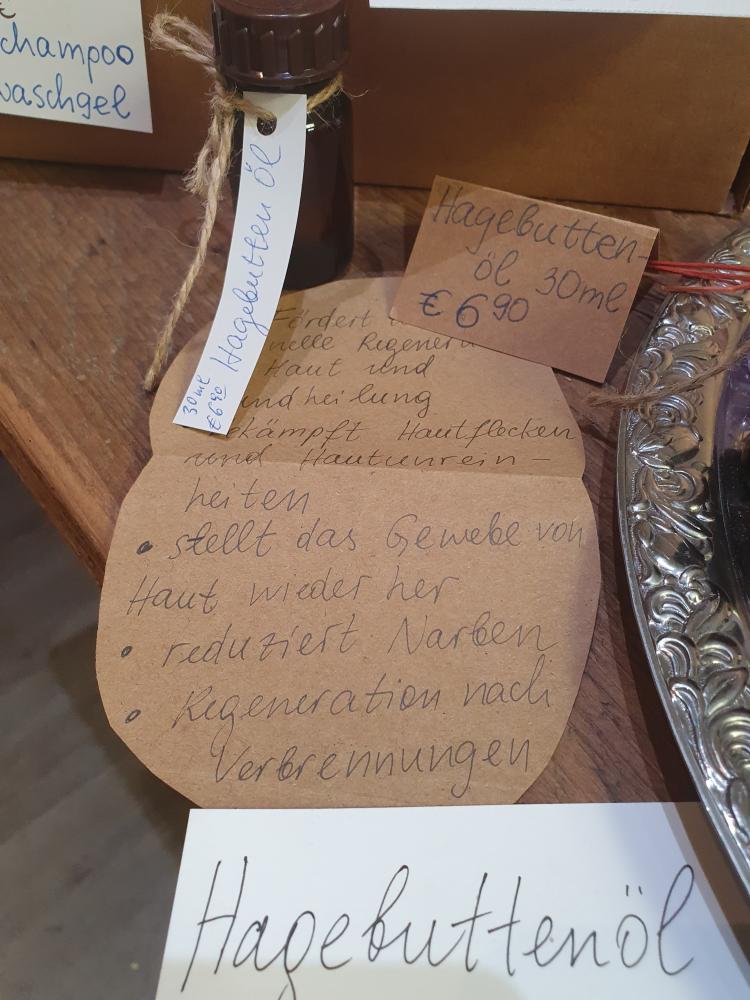 champoo
waschgel
Hagebutten Öl
30ml
€ 6 90
Hagebutten-
öl 30ml
€ 6 90
Fördert
nelle Regener
Haut und
undheilung
ekämpft Hautflecken
und Hautunrein-
heiten
• stellt das Gewebe von
Haut wieder her
• reduziert Narben
• Regeneration nach
Verbrennungen
Hagebuttenöl